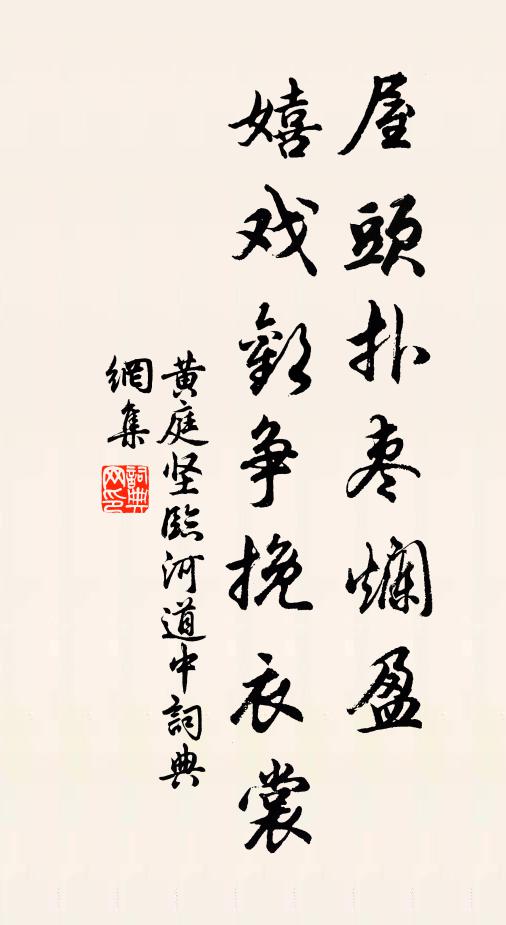 屋頭扑枣爛盈
嬉戏歡争挽衣裳
黄庭坚臨河道中詞典
網集
詞典
网印